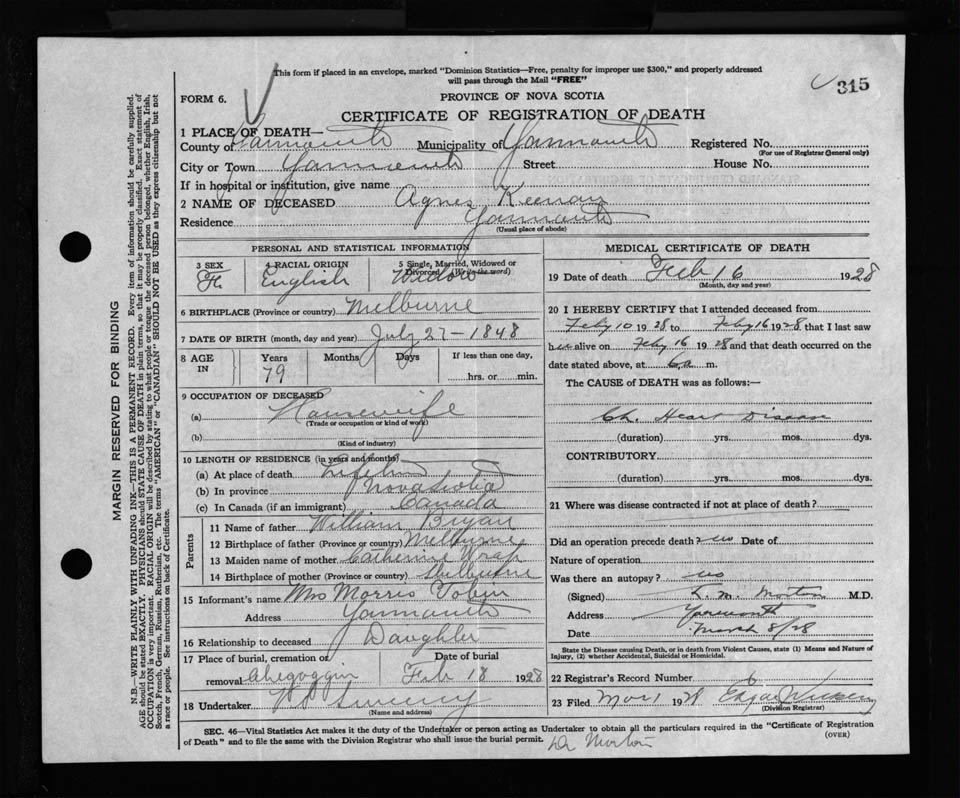 This form if placed in an envelope, marked "Dominion Statistics—Free, penalty for improper use $300," and properly addressed
will pass through the Mail "FREE"
315
FORM 6.
PROVINCE OF NOVA SCOTIA
CERTIFICATE OF REGISTRATION OF DEATH
1 PLACE OF DEATH—
County of Yarmouth Municipality of Yarmouth Registered No.
(For use of Registrar General only)
City or Town Yarmouth Street House No.
If in hospital or institution, give name
2 NAME OF DECEASED Agnes Keenan
Residence Yarmouth
(Usual place of abode)
PERSONAL AND STATISTICAL INFORMATION
3 SEX 4 RACIAL ORIGIN 5 Single, Married, Widowed or
Divorced (Write the word)
F. English Widow
6 BIRTHPLACE (Province or country) Melburne
7 DATE OF BIRTH (month, day and year) July 27 - 1848
8 AGE IN Years Months Days If less than one day,
79 hrs. or min.
9 OCCUPATION OF DECEASED
(a) Housewife
(Trade or occupation or kind of work)
(b)
(Kind of industry)
10 LENGTH OF RESIDENCE (in years and months)
(a) At place of death
(b) In province Nova Scotia
(c) In Canada (if an immigrant) Canada
Parents
11 Name of father William Bryan
12 Birthplace of father (Province or country) Melburne
13 Maiden name of mother Catherine
14 Birthplace of mother (Province or country) Shelburne
15 Informant's name Mrs Morris Tobin
Address Yarmouth
16 Relationship to deceased Daughter
17 Place of burial, cremation or Date of burial
removal Feb 18 1928
18 Undertaker Sweeny
(Name and address)
MEDICAL CERTIFICATE OF DEATH
19 Date of death Feb 16 1928
(Month, day and year)
20 I HEREBY CERTIFY that I attended deceased from
Feby 10 1928 to Feby 16 1928 that I last saw
her alive on Feby 16 1928 and that death occurred on the
date stated above, at 6 a m.
The CAUSE of DEATH was as follows:
Ch. Heart Disease
(duration) yrs. mos. dys.
CONTRIBUTORY
(duration) yrs. mos. dys.
21 Where was disease contracted if not at place of death?
Did an operation precede death? no Date of
Nature of operation
Was there an autopsy? no
(Signed) Morton M.D.
Address Yarmouth
Date March 8/28
State the Disease causing Death, or in death from Violent Causes, state (1) Means and Nature of
Injury, (2) whether Accidental, Suicidal or Homicidal.
22 Registrar's Record Number
23 Filed 1928 Edgar
(Division Registrar)
SEC. 46—Vital Statistics Act makes it the duty of the Undertaker or person acting as Undertaker to obtain all the particulars required in the "Certificate of Registration
of Death" and to file the same with the Division Registrar who shall issue the burial permit.
(OVER)
Dr Morton
MARGIN RESERVED FOR BINDING
N.B.—WRITE PLAINLY WITH UNFADING INK—THIS IS A PERMANENT RECORD. Every item of information should be carefully supplied.
AGE should be stated EXACTLY. PHYSICIANS should STATE CAUSE OF DEATH in plain terms, so that it may be properly classified. Exact statement of
OCCUPATION is very important. RACIAL ORIGIN will be described by stating to what people or tongue the deceased person belonged, whether English, Irish,
Scotch, French, German, Russian, Ruthenian, etc. The terms "AMERICAN" or "CANADIAN" SHOULD NOT BE USED as they express citizenship but not
a race or people. See instructions on back of Certificate.